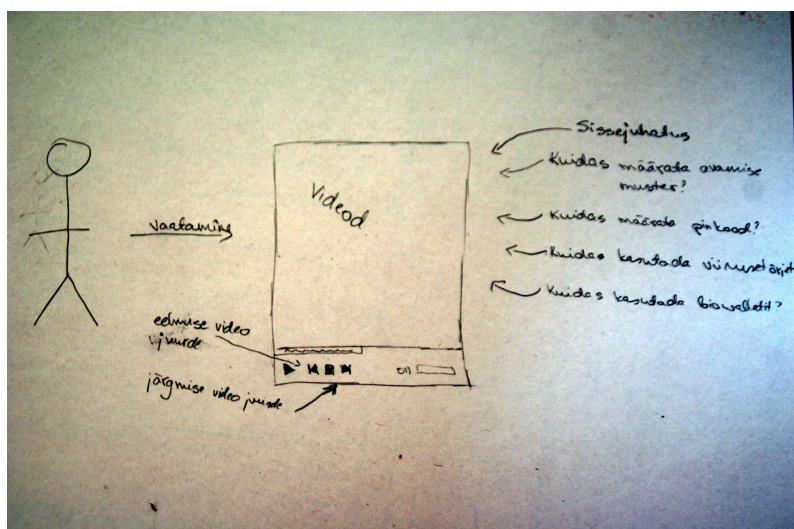 Sissejuhatus
Kuidas määrata avamise
muster?
Videod
vaatamine
Kuidas määrata pinkood?
Kuidas kasutada viirusetõrjet
Kuidas kasutada biowalletit?
eelmise video
juurde
järgmise video juurde